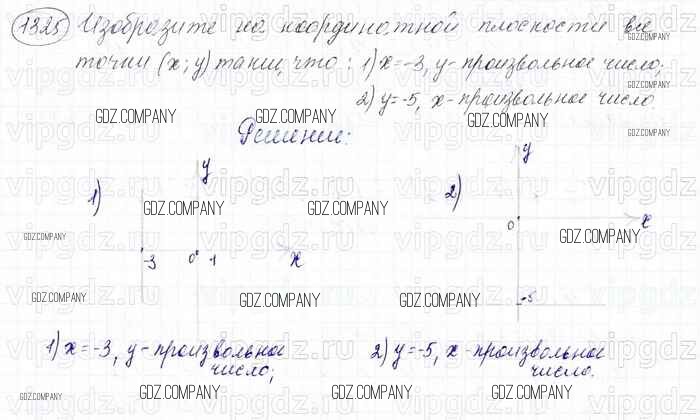 1325 Изобразите на координатной плоскости все
точки (x; y) такие, что: 1) x=-3, y- произвольное число;
2) y=-5, x- произвольное число.
Решение:
1)
y
-3 0 1 x
2)
y
0 x
-5
1) x=-3, y- произвольное
число;
2) y=-5, x- произвольное
число.
GDZ.COMPANY
vipgdz.ru